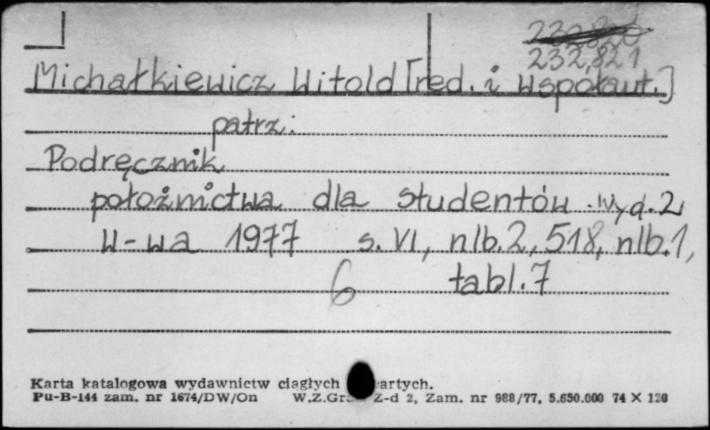 232,821
Michałkiewicz Witold [red. i współaut.]
patrz:
Podręcznik
położnictwa dla studentów. Wyd. 2
W-wa 1977 s. VI, nlb. 2, 518, nlb. 1,
6 tabl. 7
Karta katalogowa wydawnictw ciągłych
Pu-B-144 zam. nr 1674/DW/On W.Z.Gr. Z-d 2, Zam. nr 988/77, 5.650.000 74 X 120